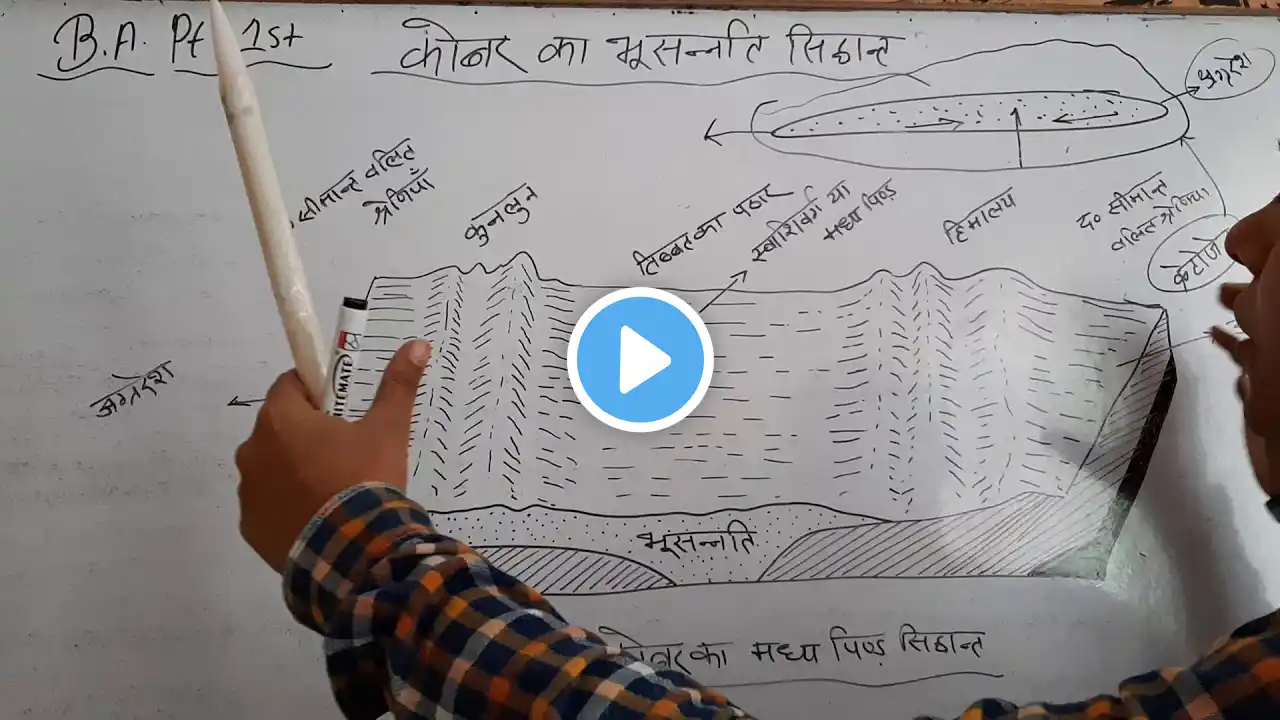 B.A. Pt 1st
कोबर का भूसन्नति सिद्धान्त
अग्रदेश
सीमान्त वलित
श्रेणियाँ
कुनलुन
तिब्बत का पठार
स्वाशिवर्ग या
मध्य पिण्ड
हिमालय
द० सीमान्त
वलित श्रेणियां
अग्रदेश
भूसन्नति
कोबर का मध्य पिण्ड सिद्धान्त